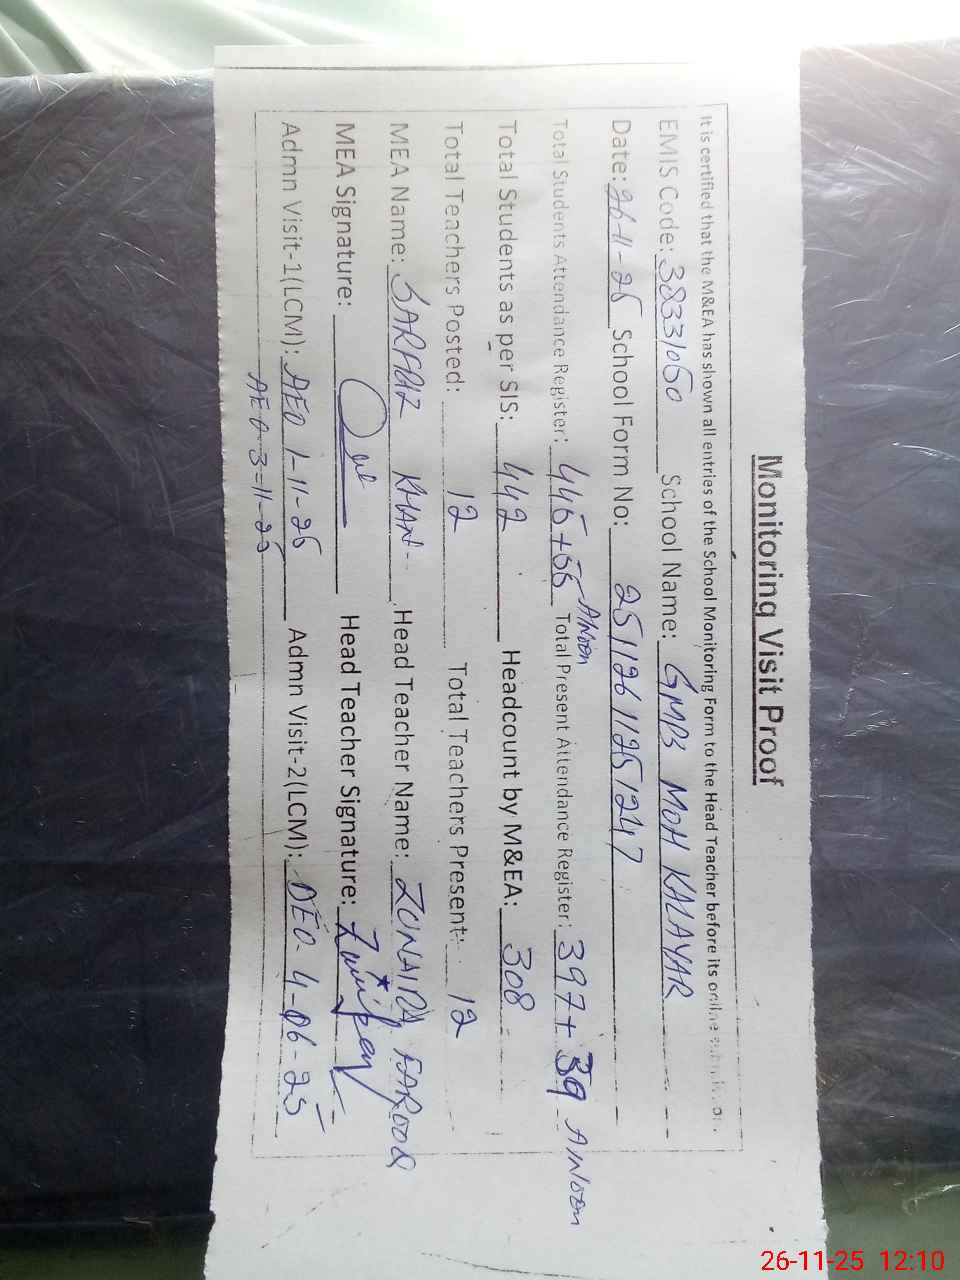 Monitoring Visit Proof
It is certified that the M&EA has shown all entries of the School Monitoring Form to the Head Teacher before its online
EMIS Code: 38331050 School Name: GMPS MOH KALAYAR
Date: 26-11-25 School Form No: 25112611251247
Total Students Attendance Register: 445+55 Total Present Attendance Register: 397+39
Total Students as per SIS: 442 Headcount by M&EA: 308
Total Teachers Posted: 12 Total Teachers Present: 12
MEA Name: SARFRAZ KHAN Head Teacher Name: ZUNAIRA FAROOQ
MEA Signature: Head Teacher Signature:
Admn Visit-1(LCM): AEO 1-11-25 Admn Visit-2(LCM): DEO 4-06-25
AEO 3-11-25
26-11-25 12:10